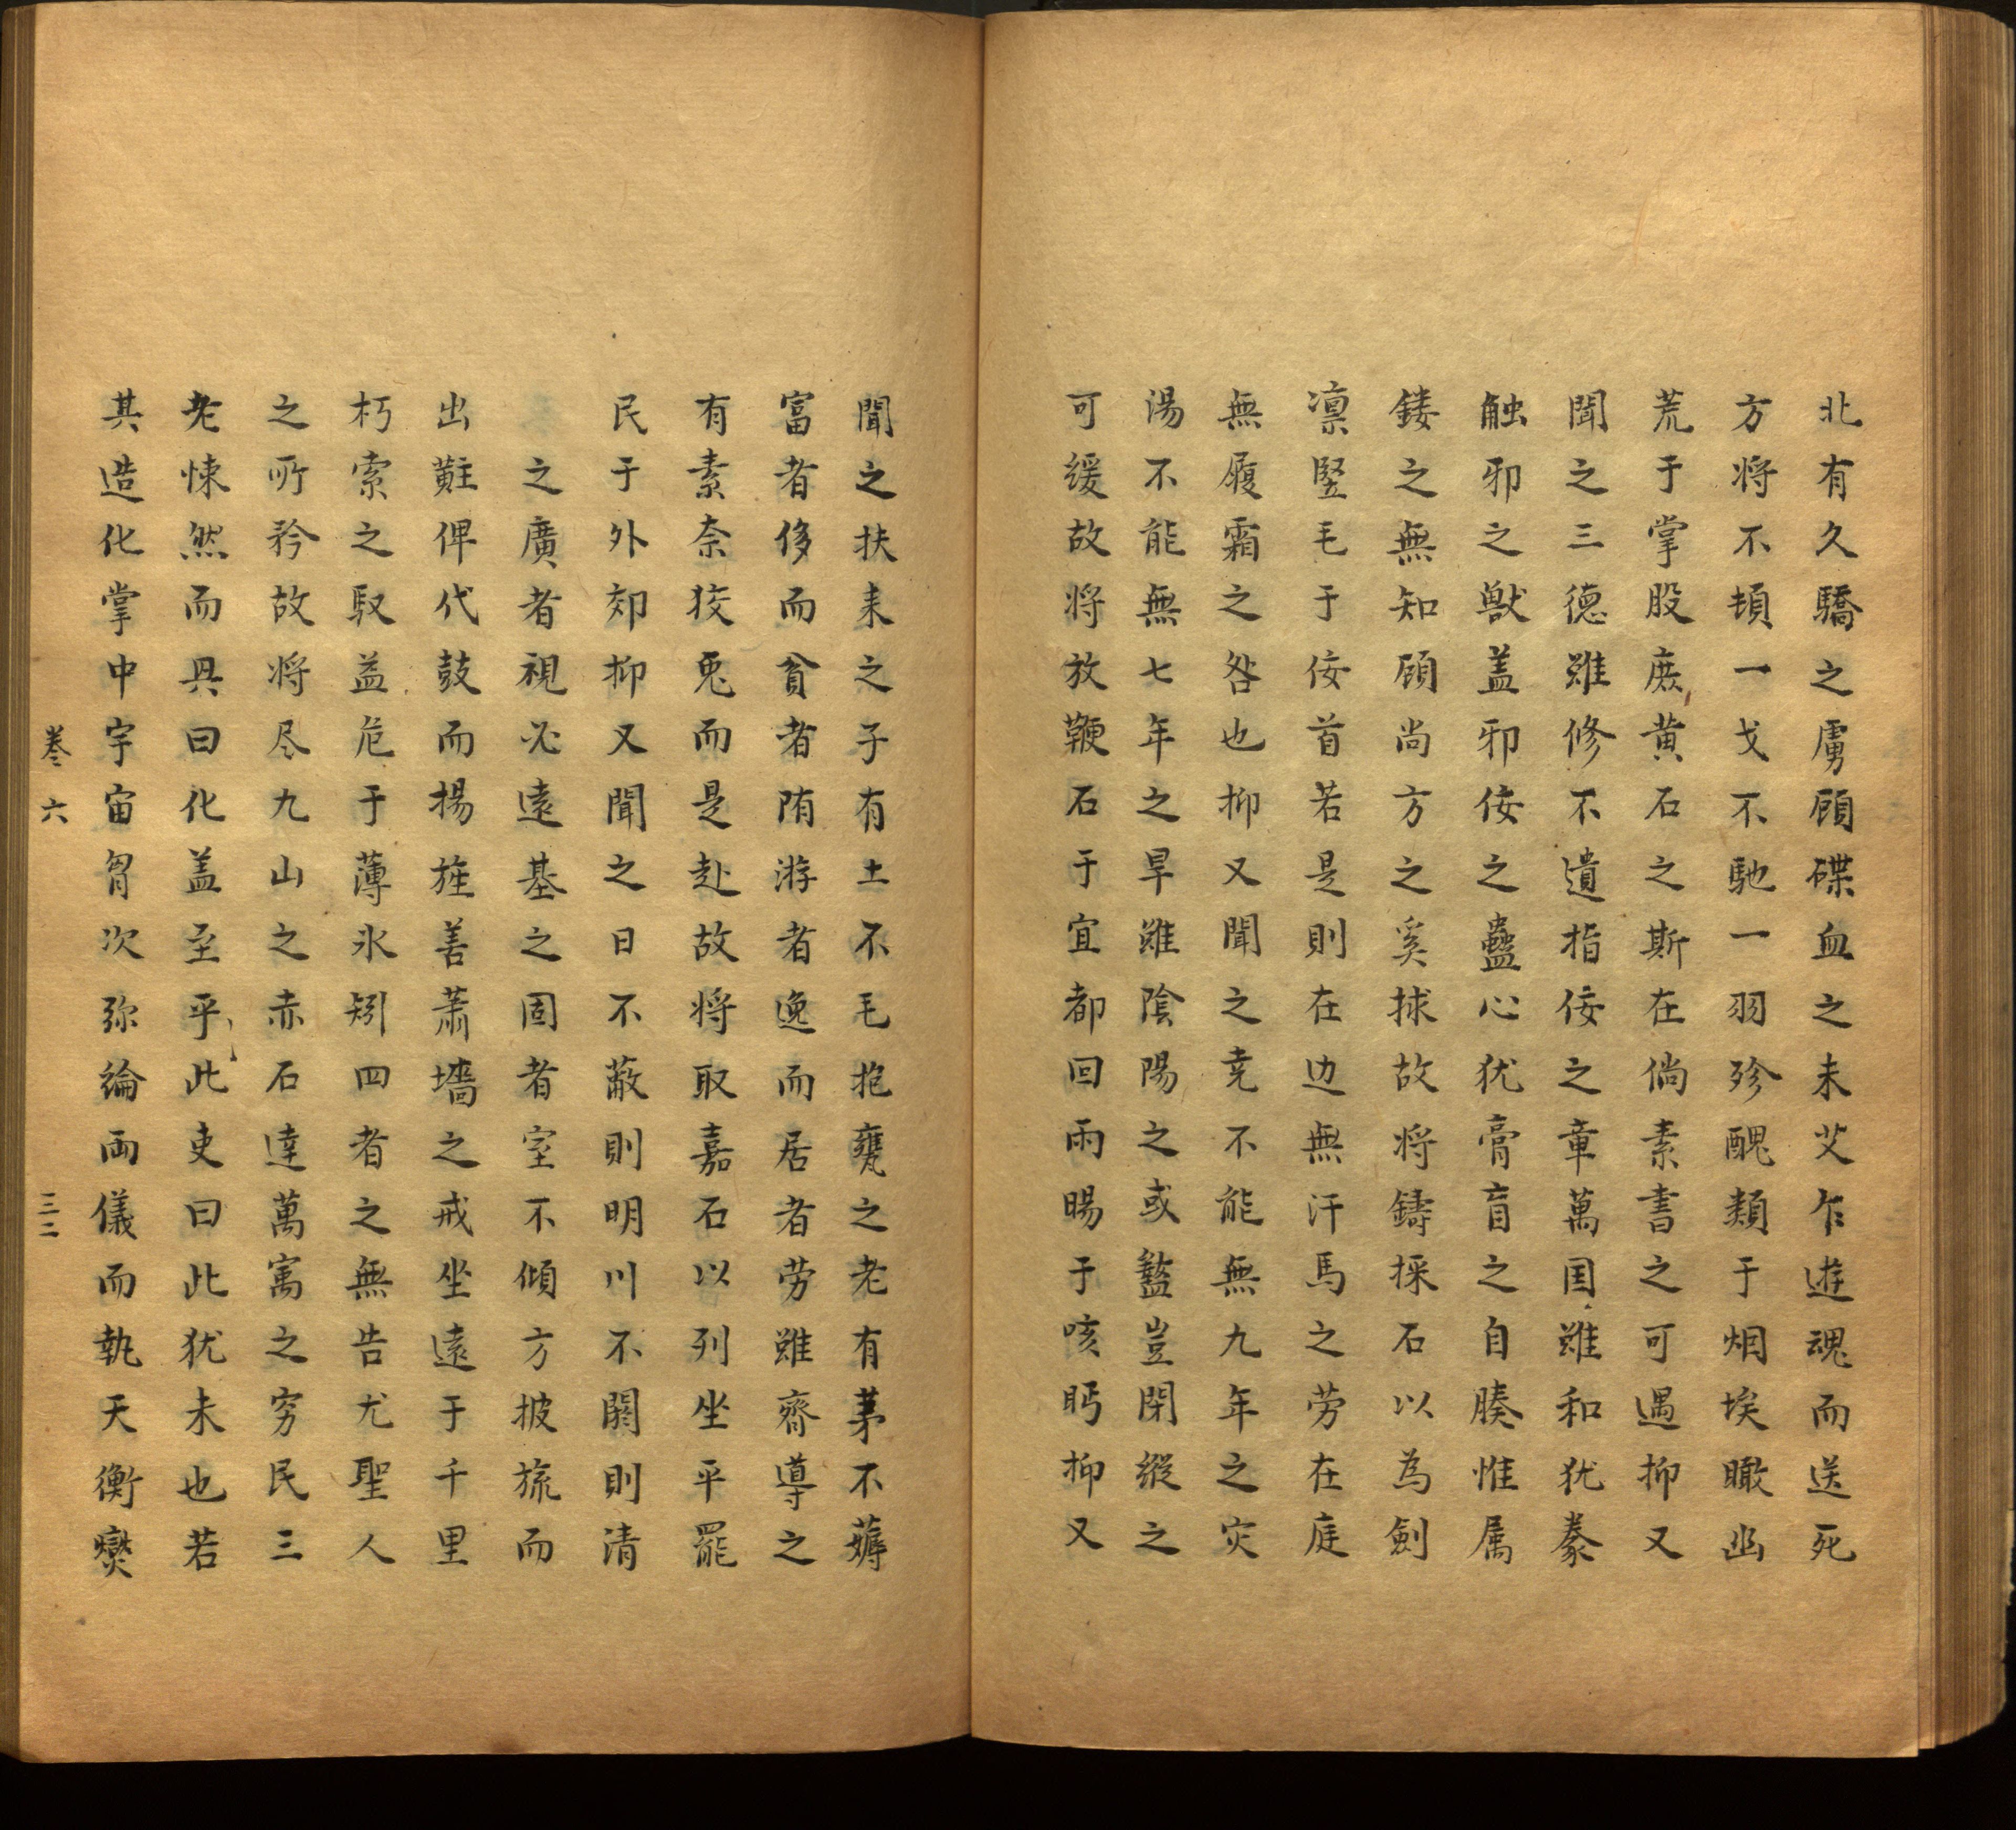 北有久驕之虜顧碟血之未艾乍遊魂而送死
方将不頓一戈不馳一羽殄醜類于烟埃瞰幽
荒于掌股庶黄石之斯在倘素書之可遇抑又
聞之三德雖修不遺指佞之章萬国雖和犹豢
触邪之獣盖邪佞之蠱心犹膏盲之自腠惟属
鏤之無知顧尚方之奚捄故将鑄採石以為劍
凛竪毛于佞首若是則在边無汗馬之劳在庭
無履霜之咎也抑又聞之尭不能無九年之灾
湯不能無七年之旱雖陰陽之或盭豈閉縱之
可缓故将放鞭石于宜都回雨暘于咳眄抑又
聞之扶耒之子有土不毛抱甕之老有茅不薅
富者侈而貧者隋游者逸而居者劳雖齊導之
有素奈狡兎而是赴故将取嘉石以列坐平罷
民于外郊抑又聞之日不蔽則明川不閼則清
之廣者視必遠基之固者室不傾方披旒而
出黈俾代鼓而揚旌善蕭墻之戒坐遠于千里
朽索之馭益危于薄氷矧四者之無告尤聖人
之所矜故将尽九山之赤石達萬寓之穷民三
老悚然而興曰化盖至乎此吏曰此犹未也若
其造化掌中宇宙胷次弥綸両儀而執天衡爕
卷六
三二